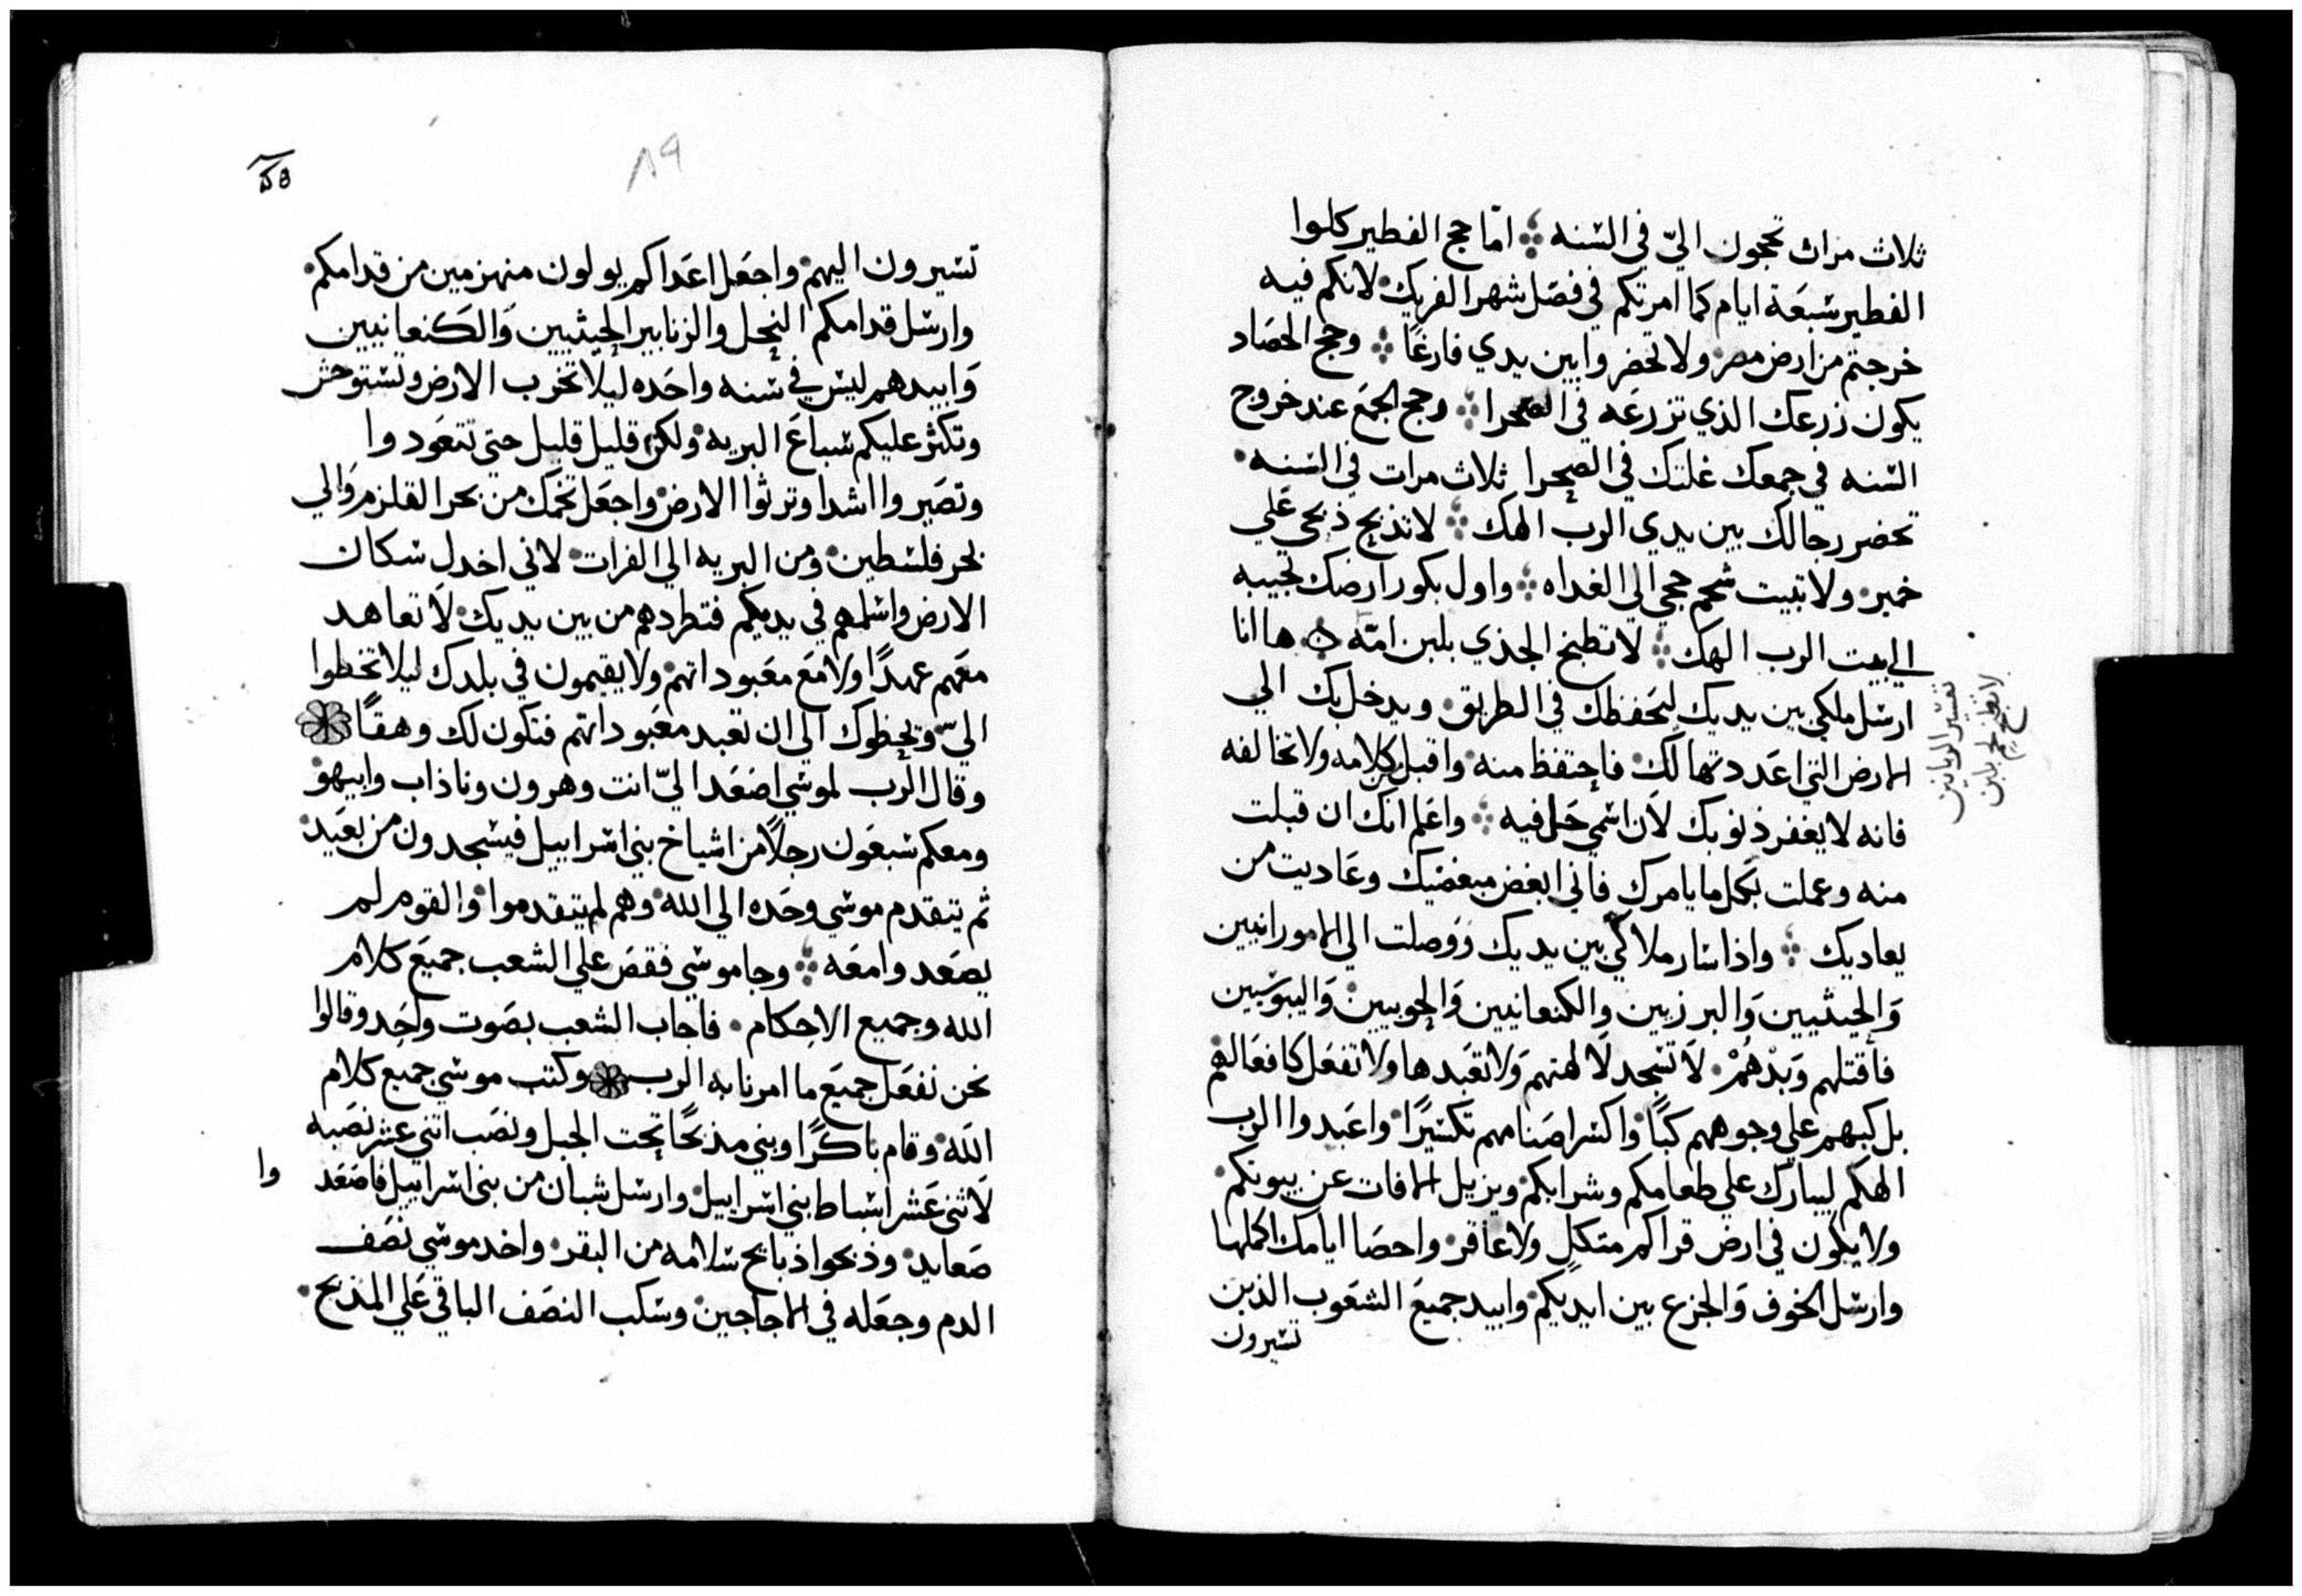 ثلاث مرات تحجون اليّ في السنه امّا حج الفطير كلوا
الفطير سبعة ايام كما امرتكم في فصل شهر الفريك لانكم فيه
خرجتم من ارض مصر ولا تحضروا بين يدي فارغًا وحج الحصاد
يكون زرعك الذي تزرعه في الصحرا وحج الجمع عند خروج
السنه في جمعك غلتك في الصحرا ثلاث مرات في السنه
تحضر رجالك بين يدي الرب الهك لا تذبح ذبحي علي
خمير ولا تبيت شحم حجي الي الغداه واول بكور ارضك تجيبه
الي بيت الرب الهك لا تطبخ الجدي بلبن امّه ها انا
ارسل ملكي بين يديك ليحفظك في الطريق ويدخل بك الي
الارض التي اعددتها لك فاحتفظ منه واقبل كلامه ولا تخالفه
فانه لا يغفر ذنوبك لان اسمي حل فيه واعلم انك ان قبلت
منه وعملت بكل ما يامرك فاني ابغض مبغضيك وعاديت من
يعاديك واذا سار ملاكي بين يديك ووصلت الي الامورانيين
والحيثيين والبرزيين والكنعانيين والحويين واليبوسيين
فأقتلهم وبدهم لا تسجد لالهتهم ولا تعبدها ولا تفعل كافعالهم
بل كبهم علي وجوههم كبًا واكسر اصنامهم تكسيرًا واعبدوا الرب
الهكم ليبارك علي طعامكم وشرابكم ويزيل الافات عن بيوتكم
ولا يكون في ارض قراكم متكل ولا عاقر واحصا ايامك اكملها
وارسل الخوف والجزع بين ايديكم وابيد جميع الشعوب الذين
تسيرون
تفسير الربانين
لا تطبخ لحم بلبن
٨٩
تسيرون اليهم واجعل اعداكم يولون منهزمين من قدامكم
وارسل قدامكم النحل والزنابير الحيثيين والكنعانيين
وابيدهم ليس في سنه واحده ليلا تخرب الارض وتستوحش
وتكثر عليكم سباع البريه ولكن قليل قليل حتي تتعودوا
وتصيروا اشدا وترثوا الارض واجعل تخمك من بحر القلزم والي
بحر فلسطين ومن البريه الي الفرات لاني اخدل سكان
الارض واسلمهم في يديكم فتطردهم من بين يديك لا تعاهد
معهم عهدًا ولا مع معبوداتهم ولا يقيمون في بلدك ليلا تخطوا
اليّ وتخطوك الي ان تعبد معبوداتهم فتكون لك وهقًا
وقال الرب لموسي اصعد اليّ انت وهرون وناذاب وابيهو
ومعكم سبعون رجلًا من اشياخ بني اسراييل فيسجدون من بعيد
ثم يتقدم موسي وحده الي الله وهم لم يتقدموا والقوم لم
يصعدوا معه وجا موسي فقص علي الشعب جميع كلام
الله وجميع الاحكام فاجاب الشعب بصوت واحد وقالوا
نحن نفعل جميع ما امرنا به الرب وكتب موسي جميع كلام
الله وقام باكرًا وبني مذبحًا تحت الجبل ونصب اتني عشر نصبه
لاثني عشر اسباط بني اسراييل وارسل شبان من بني اسراييل فاصعد وا
صعايد وذبحوا ذبايح سلامه من البقر واخد موسي نصف
الدم وجعله في الاجاجين وسكب النصف الباقي علي المذبح